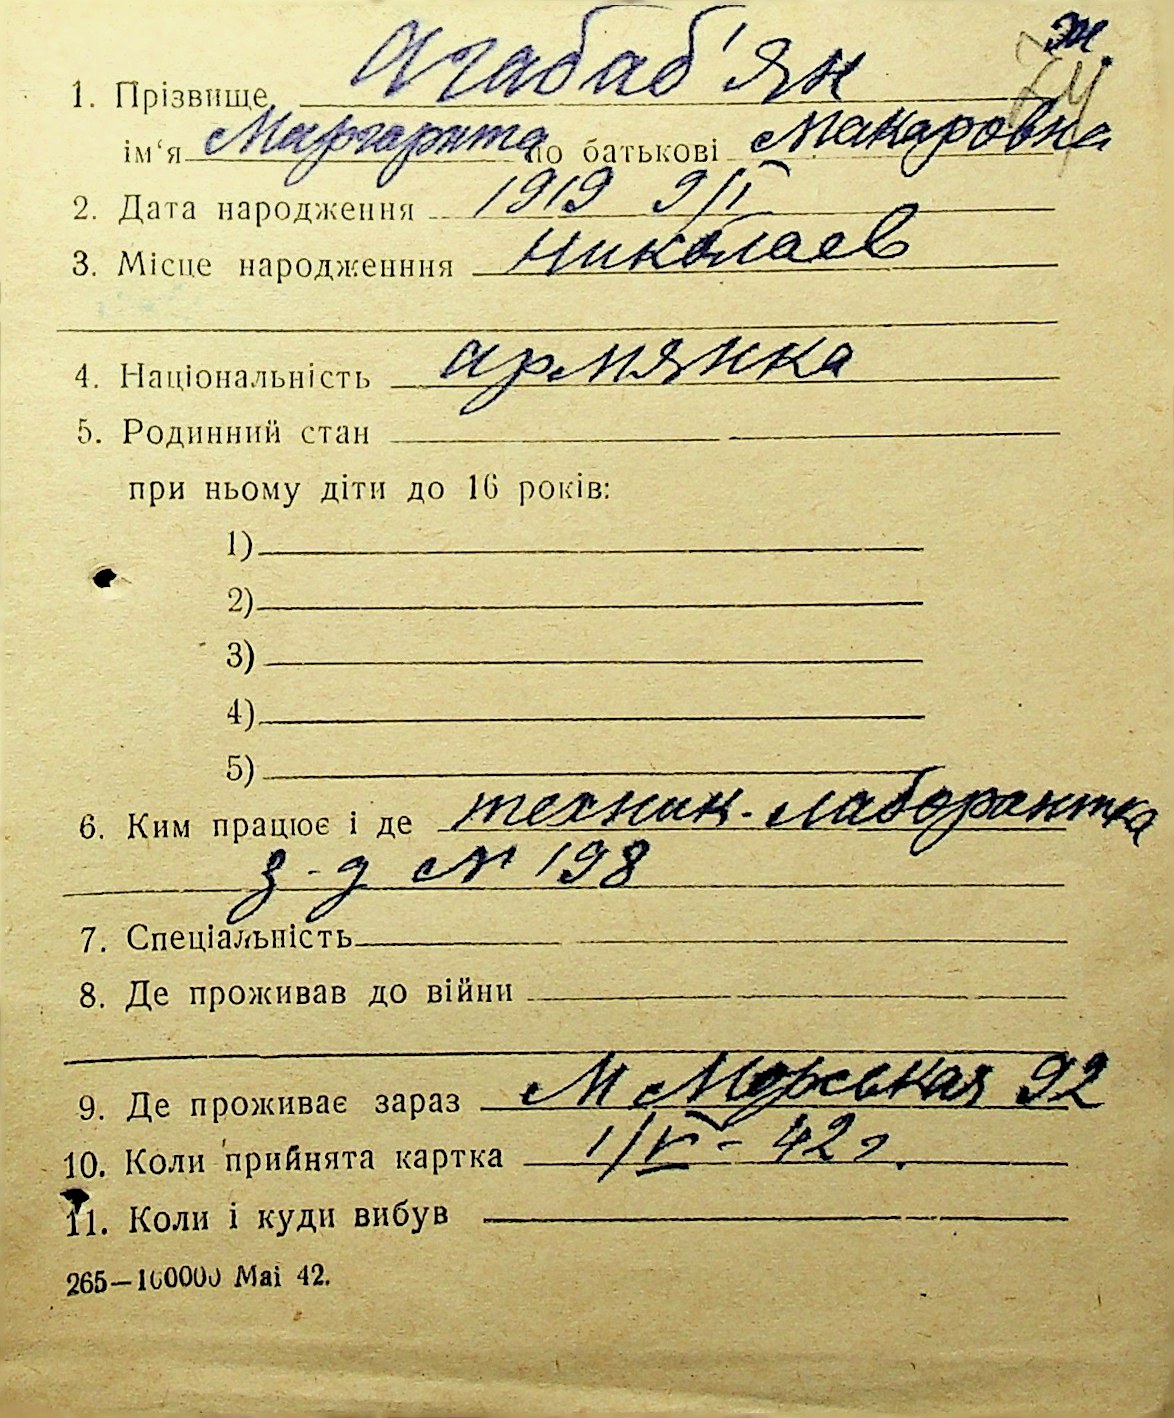 ж
74
1. Прізвище Агабаб'ян
ім‘я Маргарита по батькові Макаровна
2. Дата народження 1919 9/I
3. Місце народженння Николаев
4. Національність армянка
5. Родинний стан
при ньому діти до 16 років:
1)
2)
3)
4)
5)
6. Ким працює і де техник-лаборантка
з-д № 198
7. Спеціальність
8. Де проживав до війни
9. Де проживає зараз М Морская 92
10. Коли прийнята картка 1/V - 42 г.
11. Коли і куди вибув
265—100000 Маі 42.